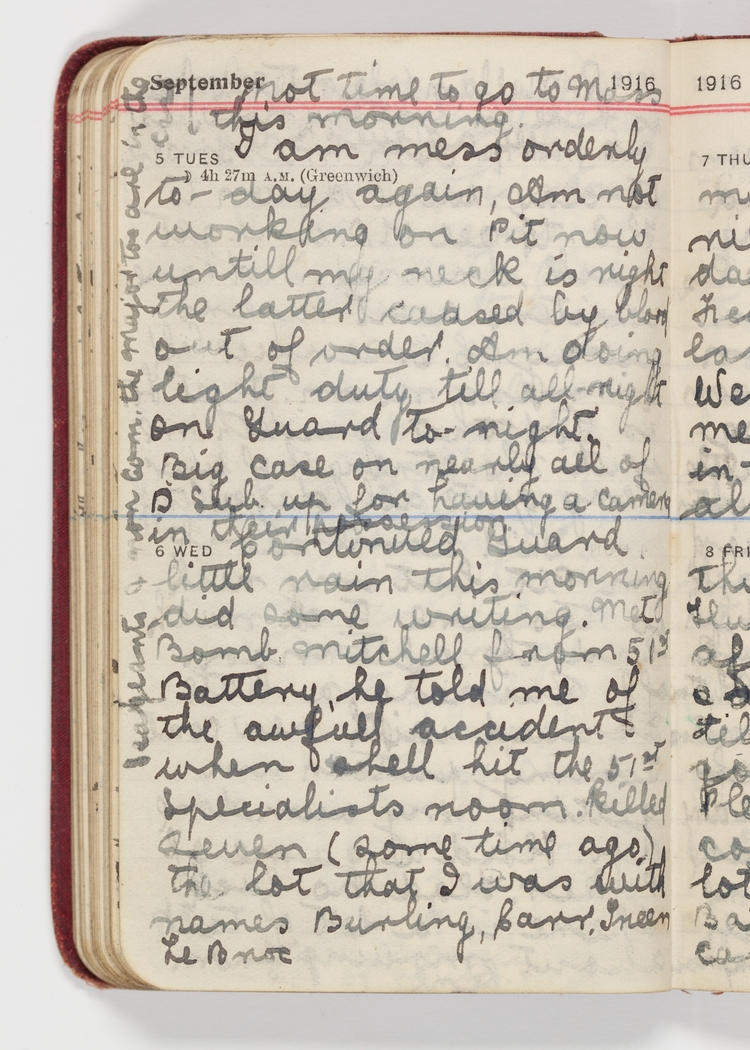 September 1916
not time to go to Mass
this morning.
5 TUES I am mess orderly
☽ 4h 27m A.M. (Greenwich)
to-day again, Am not
working on Pit now
untill my neck is right
the latter caused by blood
out of order. Am doing
light duty till all-right
on Guard to-night.
Big case on nearly all of
D Sub. up for having a camera
in their possession
6 WED Continued Guard
little rain this morning
did some writing. Met
Bomb. Mitchell from 51st
Battery, he told me of
the awfull accident
when shell hit the 51st
Specialists room. Killed
Seven (some time ago)
the lot that I was with
names Burling, Carr, Green
Le Broc
4 non Com. the Major too are in the
1916
7 THU
ni
da
la
We
me
in-
al
8 FRI
af
til
co
lot
Ba
ca